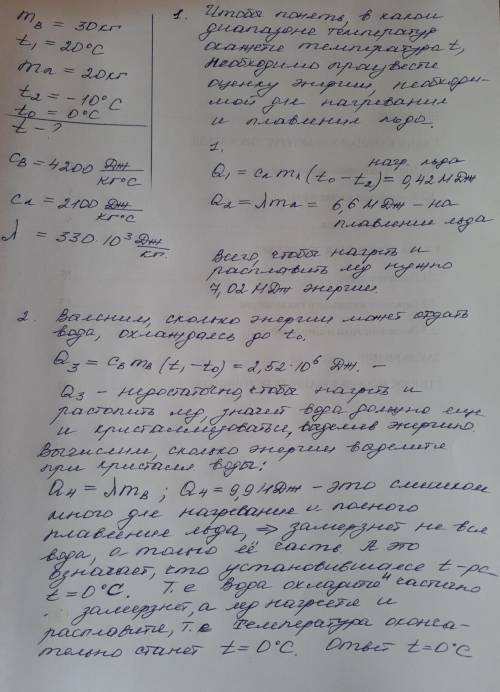 mв = 30кг
t₁ = 20°C
mл = 20кг
t₂ = -10°C
t₀ = 0°C
t - ?
cв = 4200 Дж/кг°C
cл = 2100 Дж/кг°C
λ = 330·10³ Дж/кг.
1. Чтобы понять, в каком
диапазоне температур
окажется температура t,
необходимо произвести
оценку энергии, необходи-
мой для нагревания
и плавления льда.
1.
нагр. льда
Q₁ = cл mл (t₀ - t₂) = 0,42 МДж
Q₂ = λmл = 6,6 МДж - на
плавление льда
Всего, чтобы нагреть и
расплавить лед нужно
7,02 МДж энергии
2. Выясним, сколько энергии может отдать
вода, охлаждаясь до t₀.
Q₃ = cв mв (t₁ - t₀) = 2,52·10⁶ Дж. -
Q₃ - недостаточно, чтобы нагреть и
растопить лед, значит вода должна еще
и кристаллизоваться, выделив энергию
Вычислим, сколько энергии выделится
при кристалл воды:
Q₄ = λmв ; Q₄ = 9,9 МДж - это слишком
много для нагревание и полного
плавление льда, ⇒ замерзнет не вся
вода, а только её часть А это
означает, что установившаяся t-ра
t = 0°C. Т.е вода охладится частично
замерзнет, а лед нагреется и
расплавится, т.е температура оконча-
тельно станет t = 0°C. Ответ t = 0°C